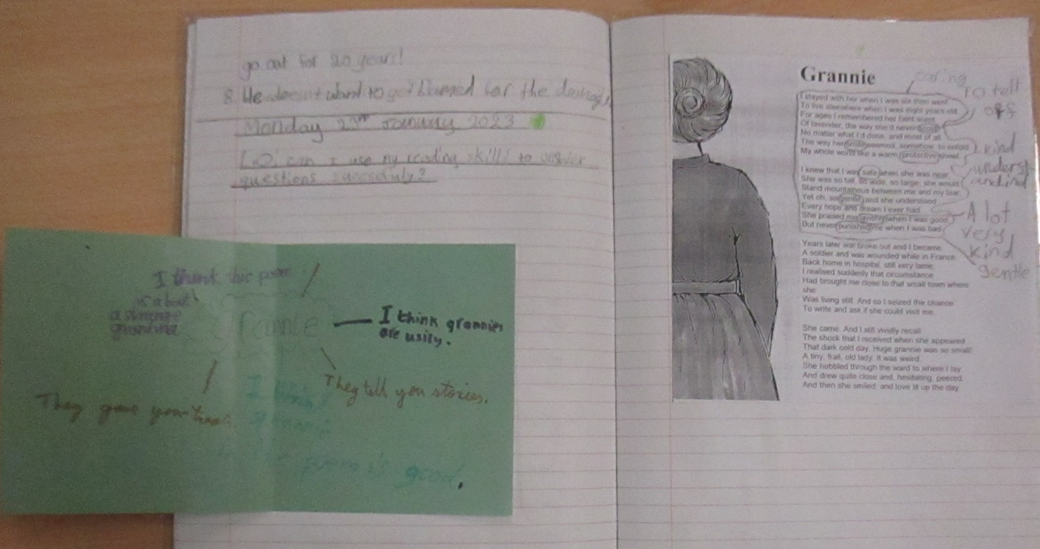 go out for 20 years!
8. He doesn't want to get blamed for the
Monday 23rd January 2023
L.O: can I use my reading skills to answer
questions
I think this poem
is about
a strange
grandma
Grannie
I think grannies
are
They tell you stories.
They gave you
I think
poem is good.
Grannie
caring
to tell
off
kind
A lot
very
kind
gentle
I stayed with her when I was six then went
To live elsewhere when I was eight years old.
For ages I remembered her faint scent
Of lavender, the way she'd never scold
No matter what I'd done, and most of all
The way her smile seemed, somehow, to enfold
My whole world like a warm, protective shawl.
I knew that I was safe when she was near,
She was so tall, so wide, so large, she would
Stand mountainous between me and my fear,
Yet oh, so gentle, and she understood
Every hope and dream I ever had.
She praised me lavishly when I was good,
But never punished me when I was bad.
Years later war broke out and I became
A soldier and was wounded while in France.
Back home in hospital, still very lame,
I realised suddenly that circumstance
Had brought me close to that small town where
she
Was living still. And so I seized the chance
To write and ask if she could visit me.
She came. And I still vividly recall
The shock that I received when she appeared
That dark cold day. Huge grannie was so small!
A tiny, frail, old lady. It was weird.
She hobbled through the ward to where I lay
And drew quite close and, hesitating, peered.
And then she smiled: and love lit up the day.